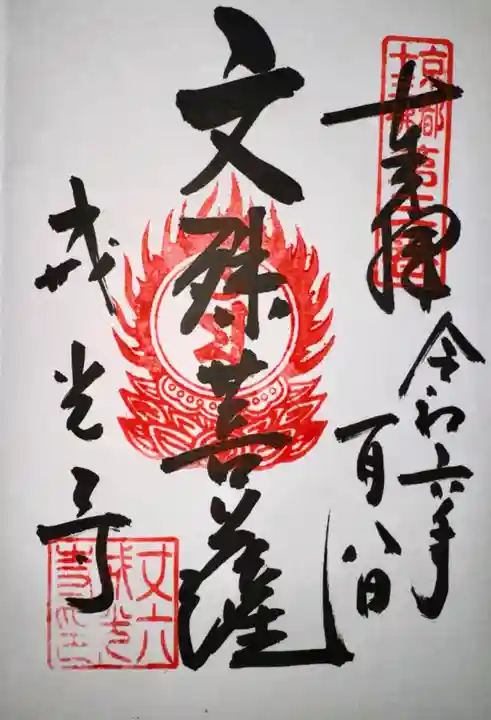 奉拝
京都第三番
十三佛
令和六年
一月八日
文殊菩薩
戒光寺
丈六
戒光